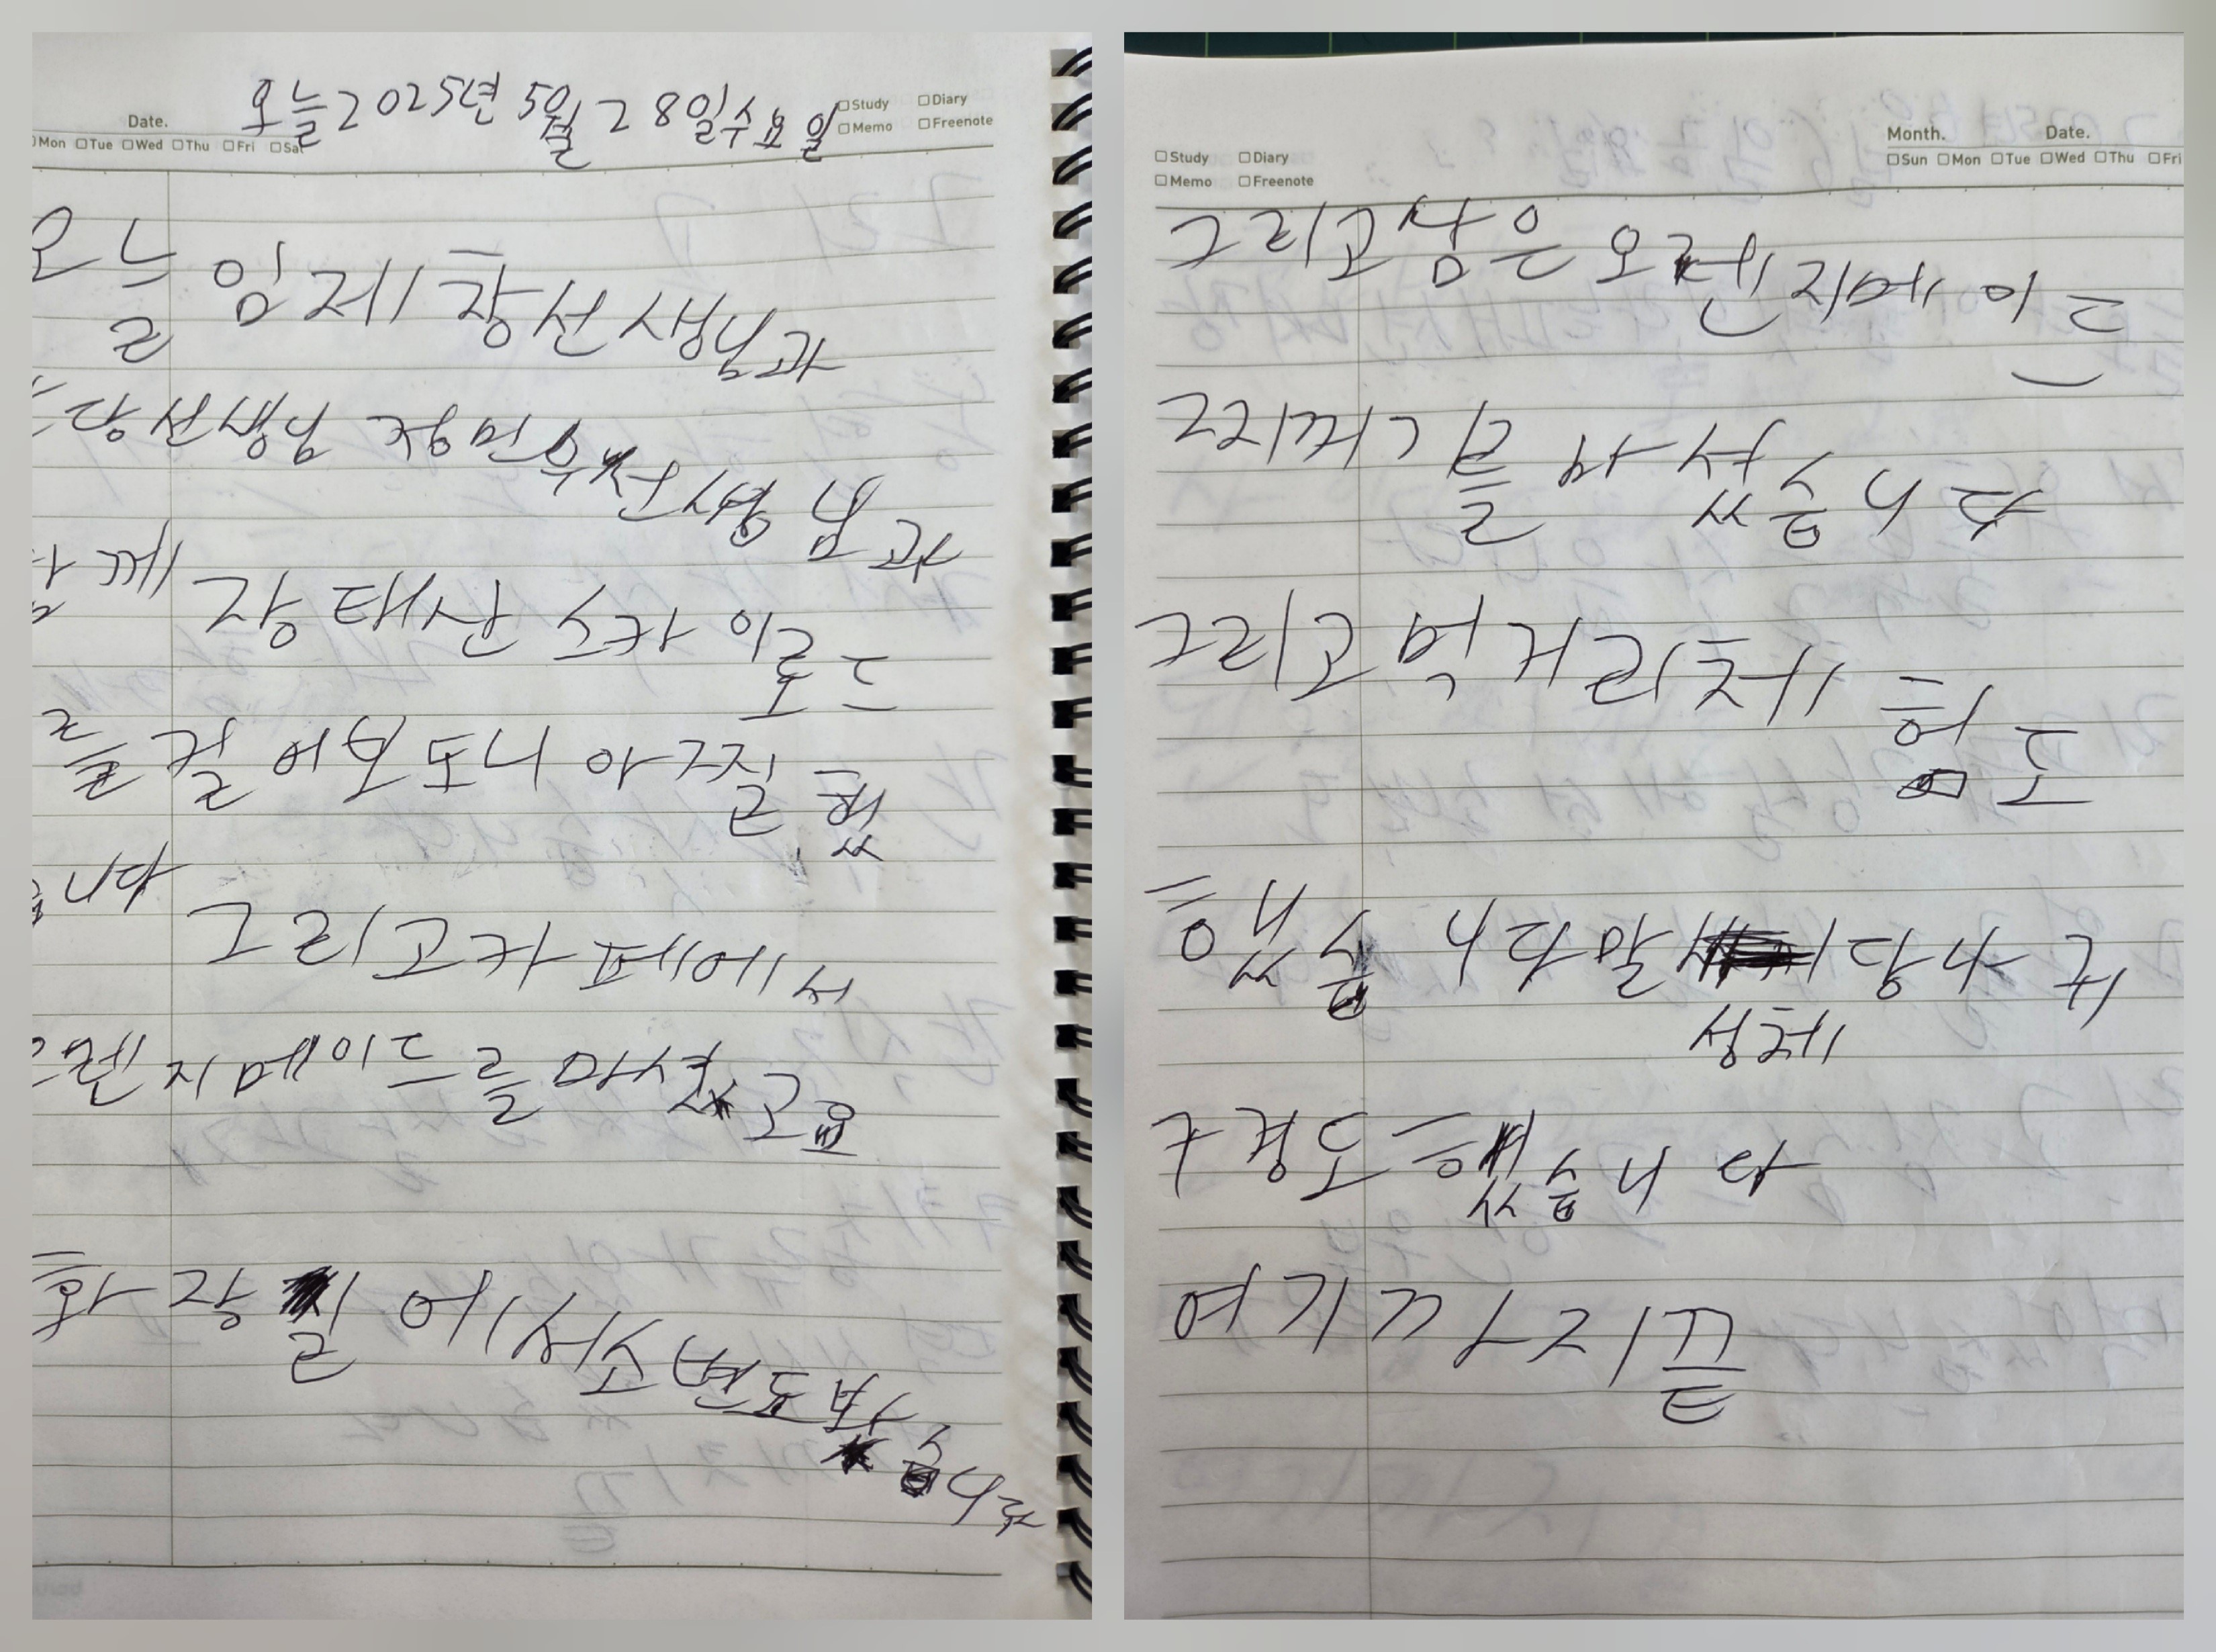 오늘2025년 5월28일수요일
Date.
Mon Tue Wed Thu Fri Sat
Study Diary
Memo Freenote
오늘 임제황선생님과
선생님 정민우선생님과
함께 장태산 스카이로드
를 걸어보도니 아찔했
습니다 그리고카페에서
오렌지메이드를마셨고요
화장실에서소변도봤습니다
Study Diary
Memo Freenote
Month. Date.
Sun Mon Tue Wed Thu Fri
그리고남은오렌지메이드
를마셨습니다
그리고먹거리체험도
했습니다말 당나귀
성체
구경도했습니다
여기까지끝